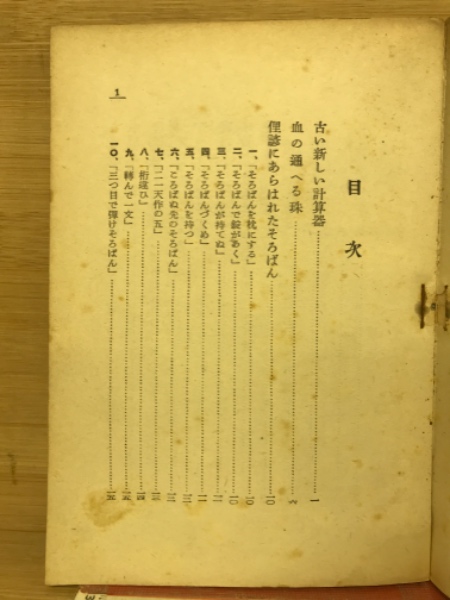 目次
古い新しい計算器……一
血の通へる珠……六
俚諺にあらはれたそろばん……一〇
一、「そろばんを枕にする」……一〇
二、「そろばんで錠があく」……一〇
三、「そろばんが持てぬ」……一一
四、「そろばんづくめ」……一一
五、「そろばんを持つ」……一二
六、「ころばぬ先のそろばん」……一三
七、「二一天作の五」……一三
八、「桁違ひ」……一四
九、「轉んで一文」……一五
一〇、「三つ目で彈けそろばん」……一五
1